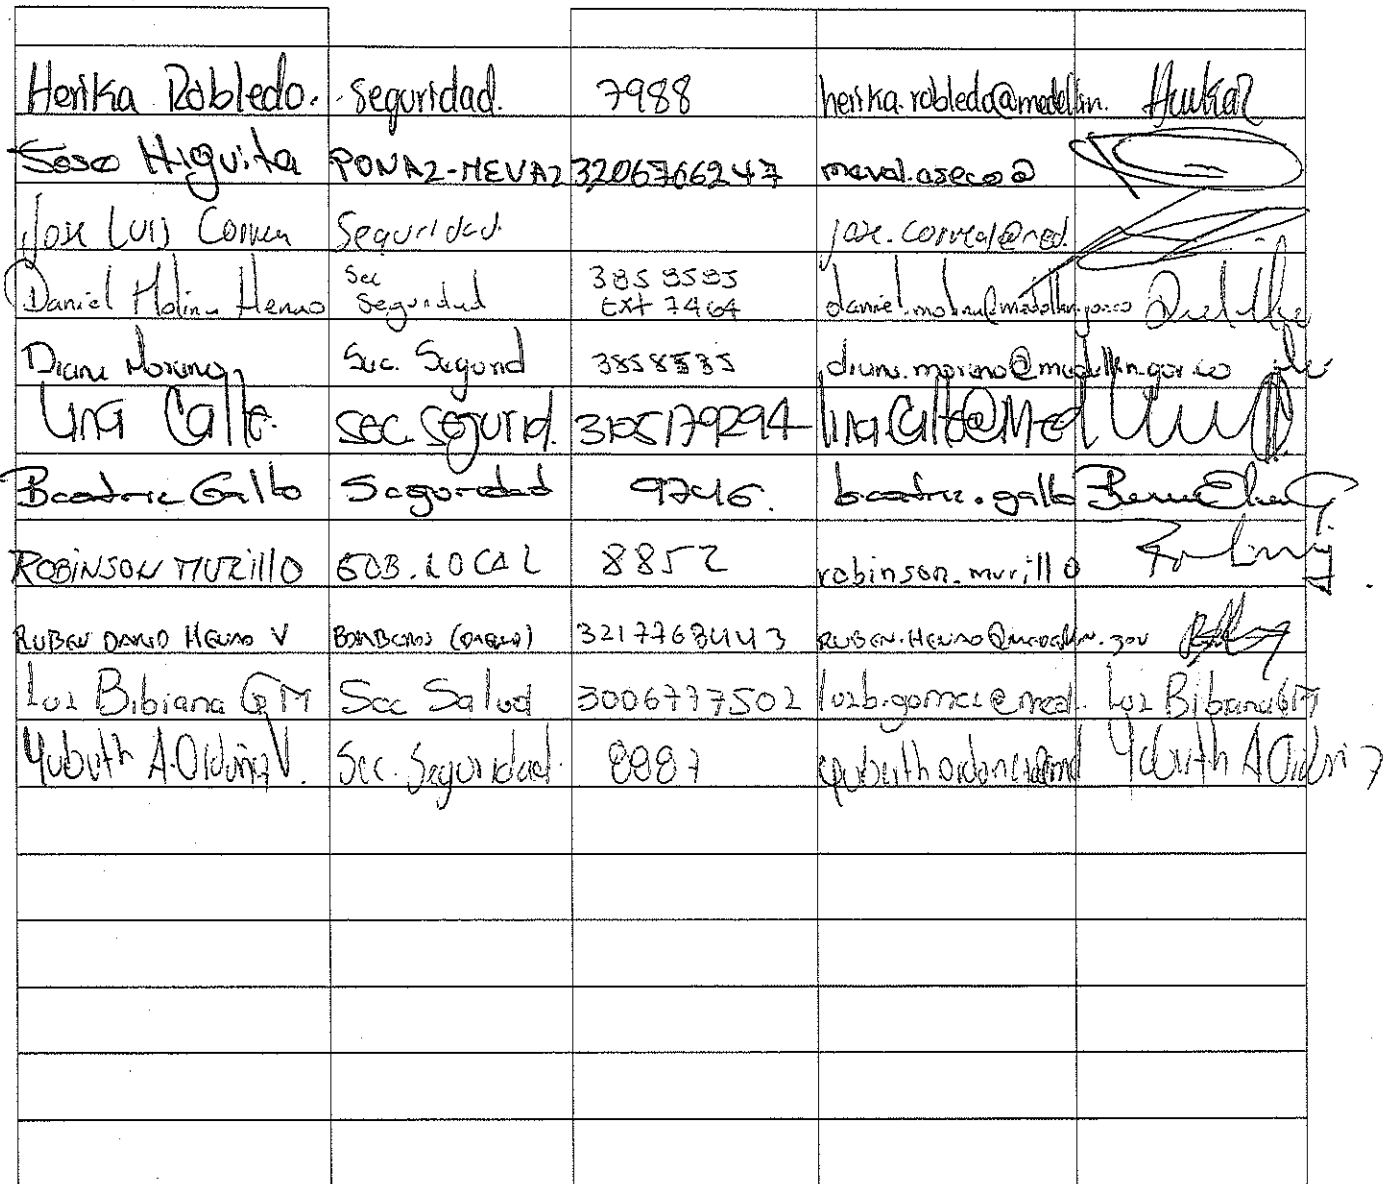 Herika Robledo. Seguridad. 7988 herika.robledo@medellin. HerikaR
Higuita PONAL-MEVAL 3206766247 meval.aseco@
Jose Luis Correa Seguridad. jose.correal@med.
Daniel Molina Henao Sec Seguridad 3858585 Ext 7464 daniel.molina@medellin.gov.co
Diana Moreno Sec. Segurid 3858585 diana.moreno@medellin.gov.co
Lina Calle. Sec. Segurid. 3105179294 lina.Calle@Med
Beatriz Gallo Seguridad 9746. beatriz.gallo
ROBINSON MURillO GOB. LOCAL 8852 robinson.murillo
RUBEN DARIO HENAO V BOMBEROS 3217768443 RUBEN.HENAO@MEDELLIN.gov
Luz Bibiana G M Sec Salud 3006777502 luzb.gomez@med. Luz Bibiana GM
Yubuth A. Sec. Seguridad. 8887